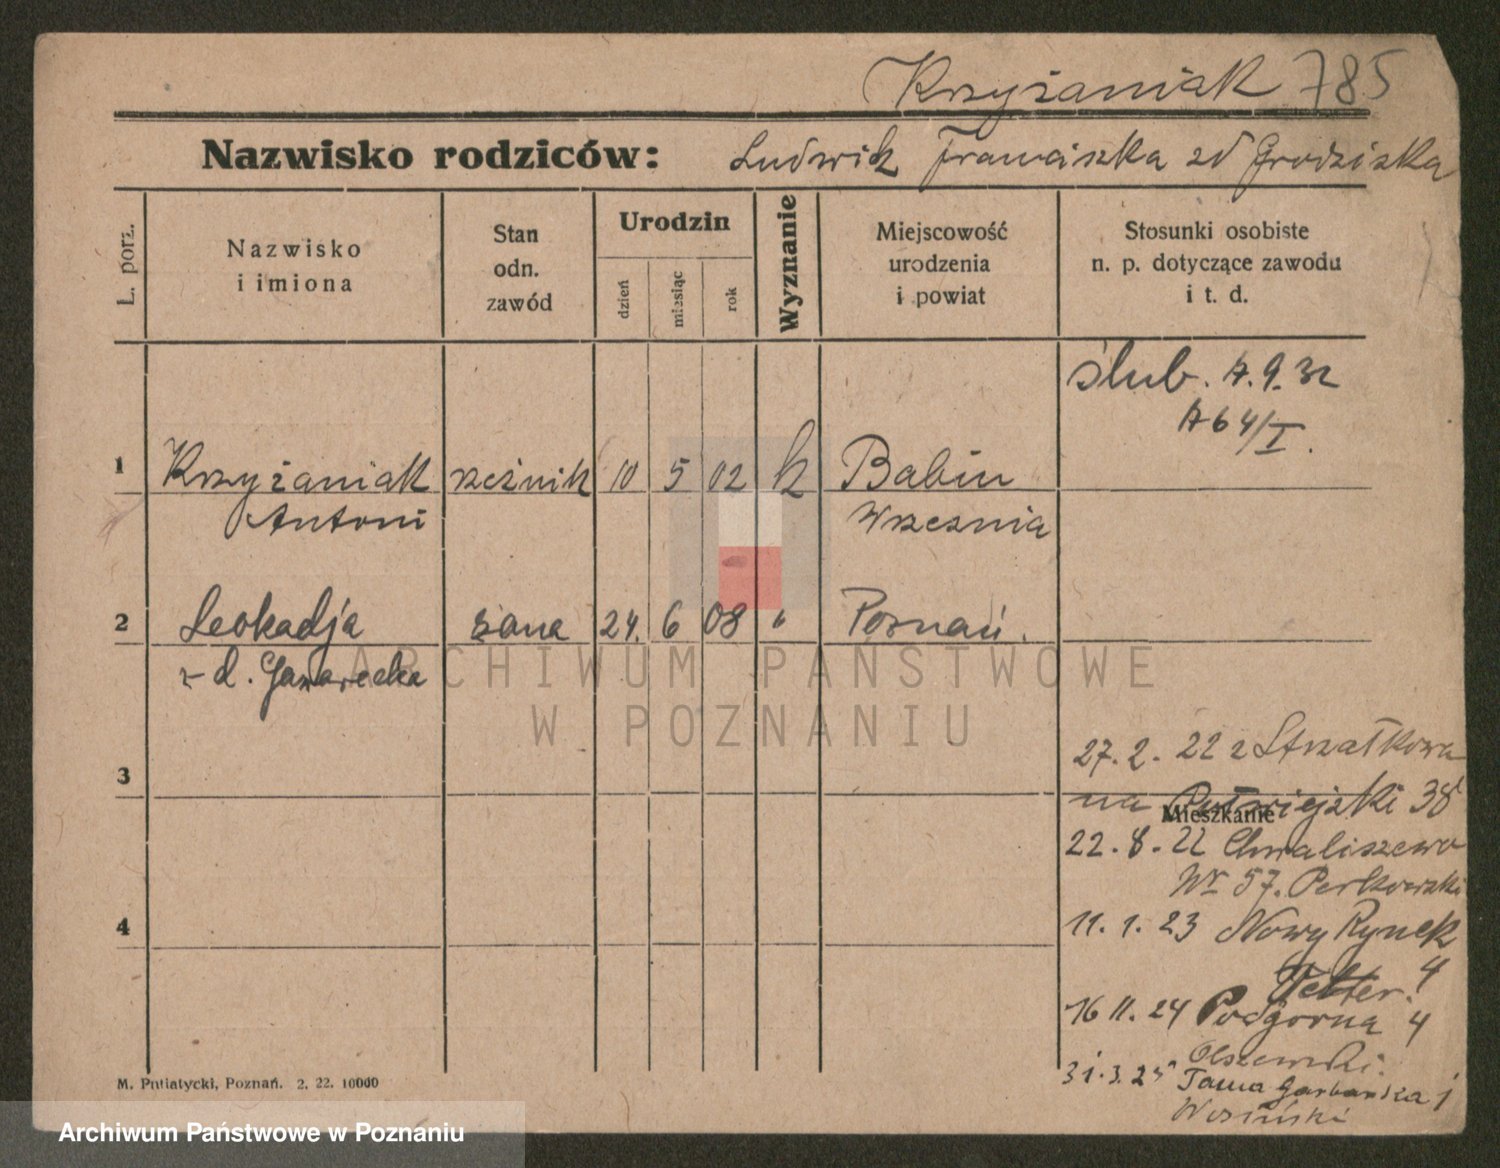 Krzyżaniak 785
Nazwisko rodziców: Ludwik Franciszka zd Grodziska
L. porz.
Nazwisko i imiona
Stan odn. zawód
Urodzin
dzień
miesiąc
rok
Wyznanie
Miejscowość urodzenia i powiat
Stosunki osobiste n. p. dotyczące zawodu i t. d.
ślub. 17.9.32
1764/I.
1 Krzyżaniak rzeźnik 10 5 02 k Babin
Antoni Wrzesnia
2 Leokadja żona 24. 6 08 " Poznań.
z d.
ARCHIWUM PAŃSTWOWE
W POZNANIU
27.2. 22 z Strzałkowa
3
na Półwiejski 38
Mieszkanie
22.8.22 Chwaliszewo
Nr 57. Perkowski
4
11.1.23 Nowy Rynek
4
16 11. 24 Podgorna 4
Olszewski.
31.3.25 Tama Garbarska 1
M. Putiatycki, Poznań. 2. 22. 10000
Archiwum Państwowe w Poznaniu